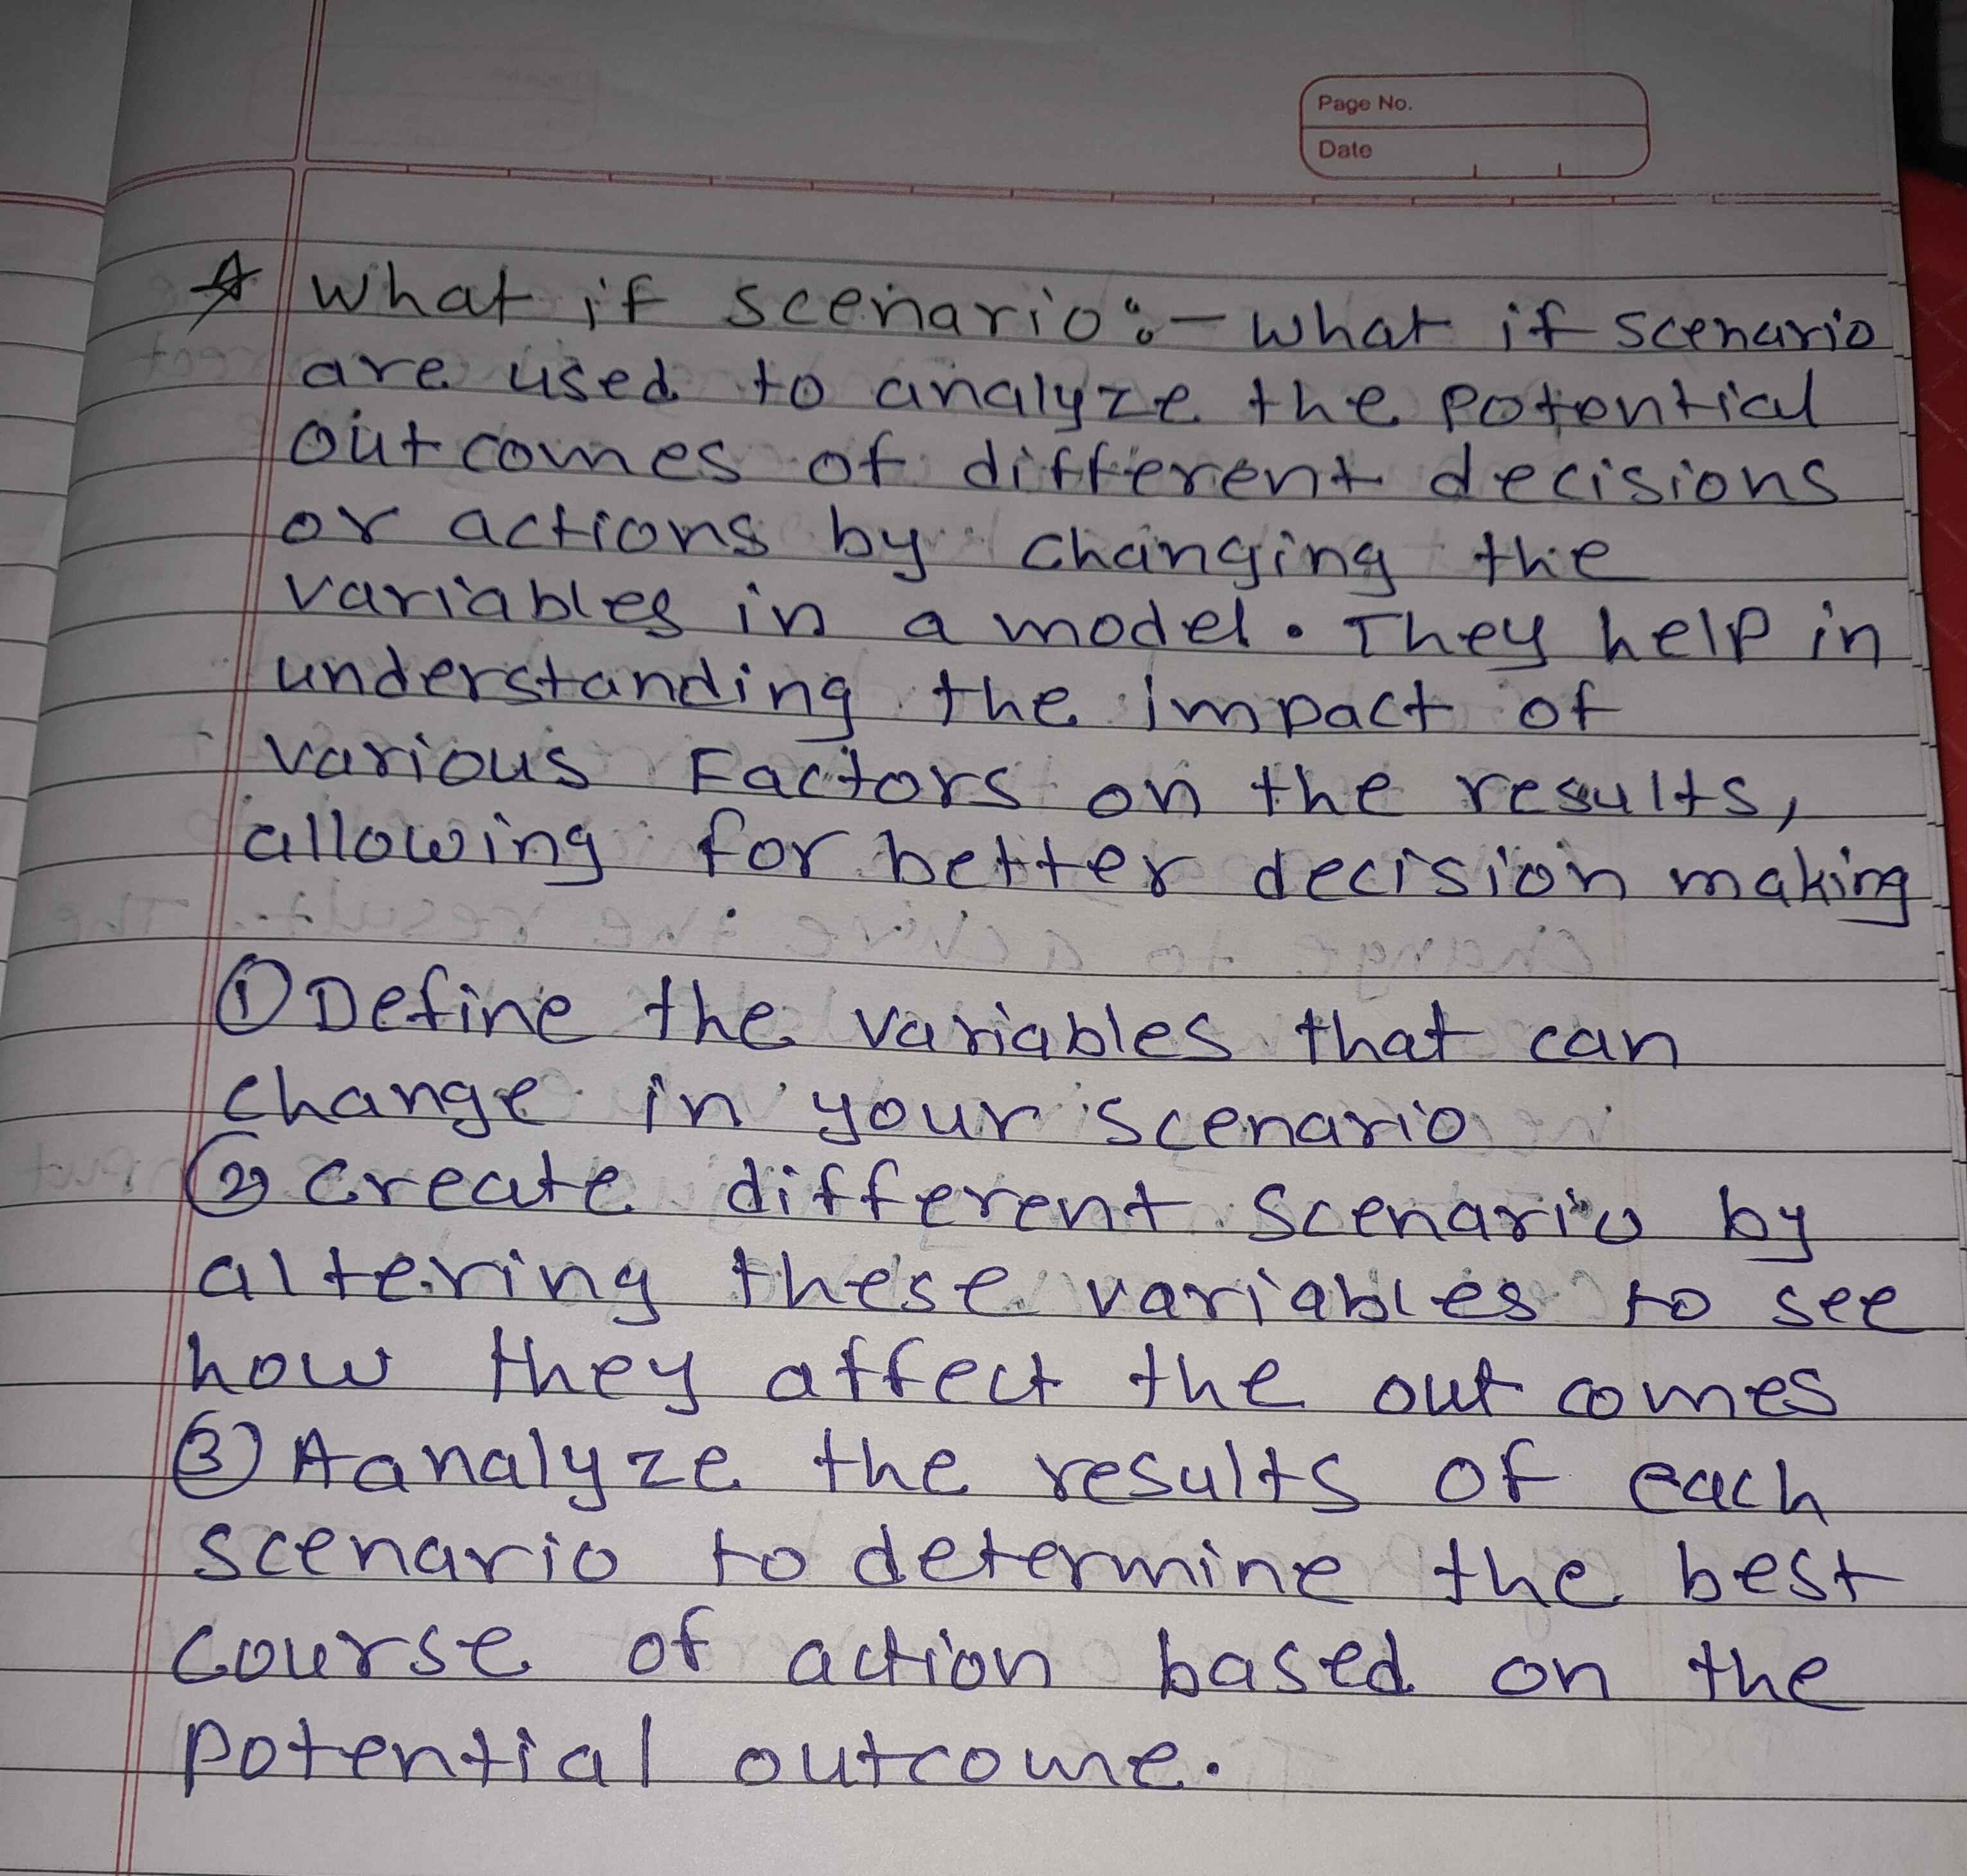 Page No.
Date
☆ What if scenario :- What if scenario
are used to analyze the potential
outcomes of different decisions
or actions by changing the
variables in a model. They help in
understanding the impact of
various Factors on the results,
allowing for better decision making
① Define the variables that can
change in your scenario
② create different scenario by
altering these variables to see
how they affect the out comes
③ Aanalyze the results of each
scenario to determine the best
course of action based on the
potential outcome.